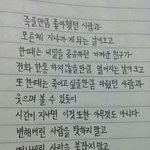 죽을만큼 좋아했던 사람과
모른체 지나가게 되는 날이오고
한때는 비밀을 공유하던 가까운 친구가
전화 한통 하지 않을만큼 멀어지는 날이 오고
또 한때는 죽이고 싶을만큼 미웠던 사람과
웃으며 볼 수 있듯이
시간이 지나면 이것 또한 아무것도 아니다.
변해버린 사람을 탓하지 말고
떠나버린 사람을 붙잡지 말고